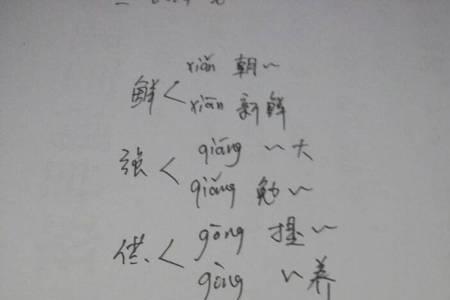 鲜< xiǎn 朝~
xiān 新鲜
强< qiáng ~大
qiǎng 勉~
供< gōng 提~
gòng ~养